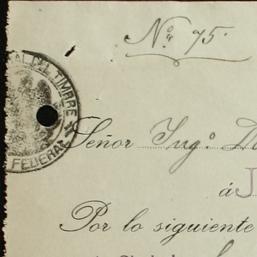 Nº 75.
AL DEL TIMBRE
FEDERAL
Señor Ingº.
á J
Por lo siguiente